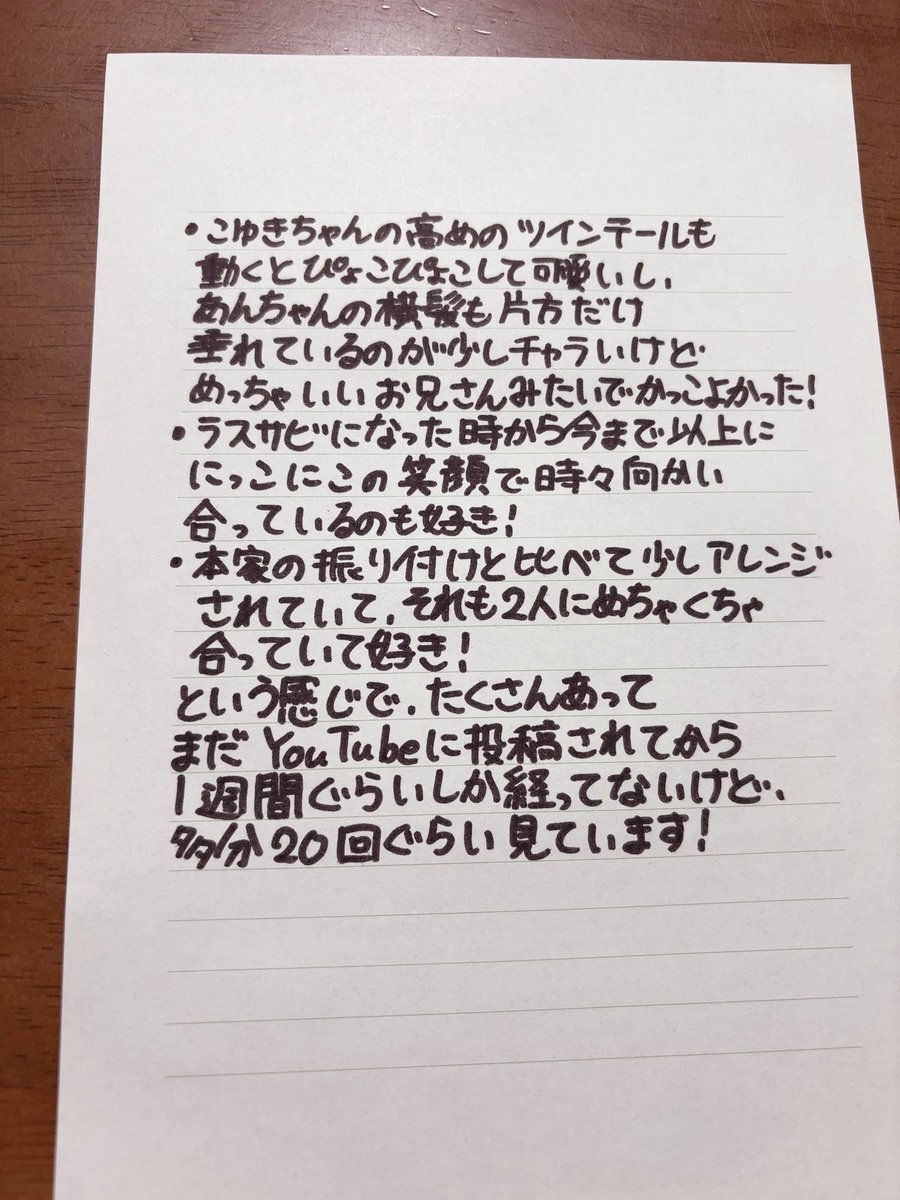 ・こゆきちゃんの高めのツインテールも
動くとぴょこぴょこして可愛いし、
あんちゃんの横髪も片方だけ
垂れているのが少しチャラいけど
めっちゃいいお兄さんみたいでかっこよかった!
・ラスサビになった時から今まで以上に
にっこにこの笑顔で時々向かい
合っているのも好き!
・本家の振り付けと比べて少しアレンジ
されていて、それも2人にめちゃくちゃ
合っていて好き!
という感じで、たくさんあって
まだYouTubeに投稿されてから
1週間ぐらいしか経ってないけど、
多分20回ぐらい見ています!